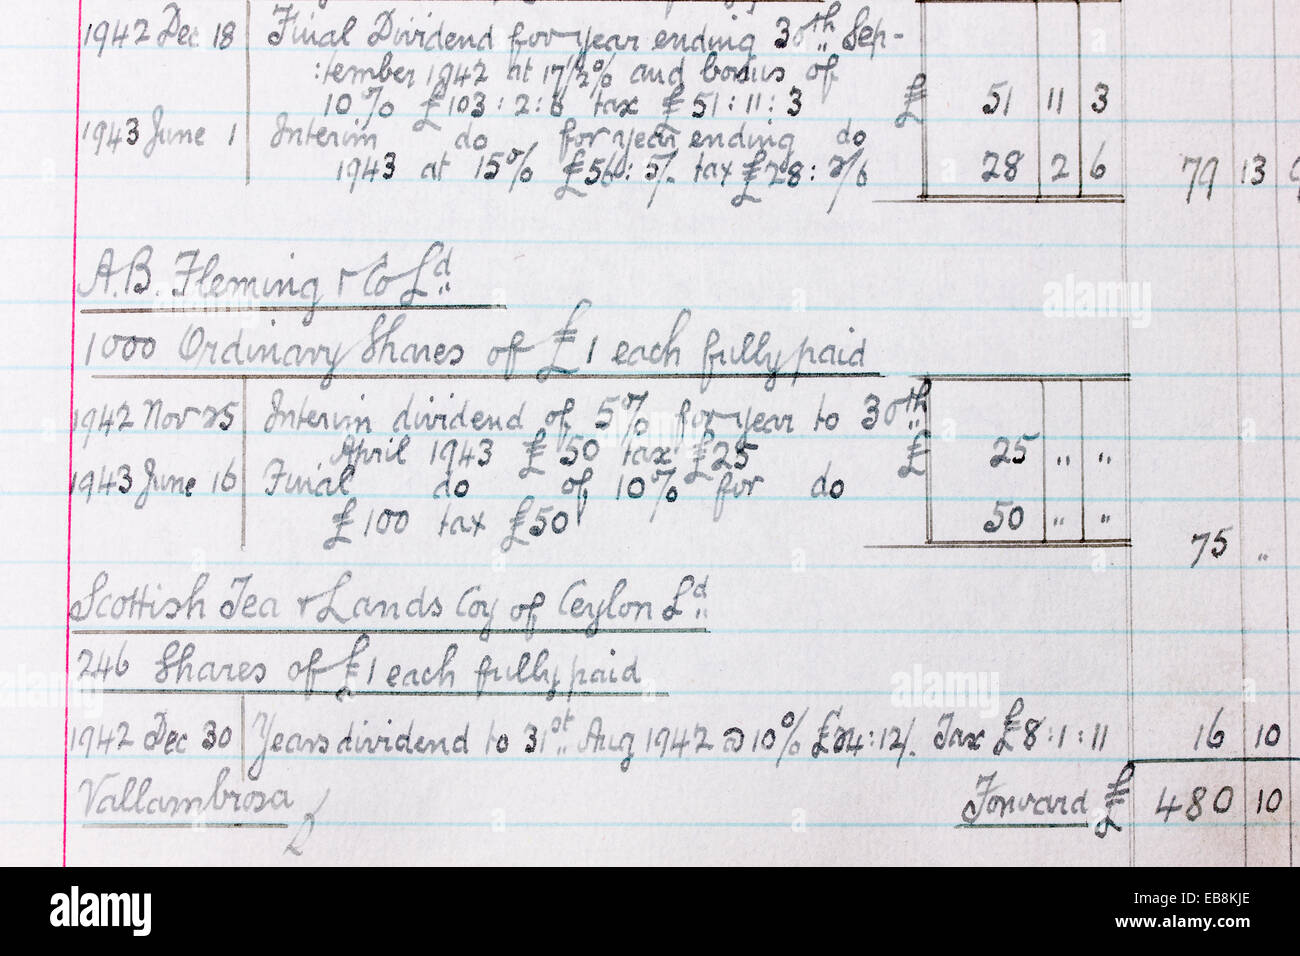 1942 Dec 18 Final Dividend for year ending 30th Sep-
:tember 1942 at 17½% and bonus of
10% £103:2:6 tax £51:11:3 £ 51 11 3
1943 June 1 Interim do for year ending do
1943 at 15% £56:5/. tax £28:2/6 28 2 6 79 13 9
A.B. Fleming & Co Ld
1000 Ordinary Shares of £1 each fully paid
1942 Nov 25 Interim dividend of 5% for year to 30th
April 1943 £50 tax £25 £ 25 " "
1943 June 16 Final do of 10% for do
£100 tax £50 50 " "
75 "
Scottish Tea & Lands Coy of Ceylon Ld
246 Shares of £1 each fully paid
1942 Dec 30 Years dividend to 31st Aug 1942 @ 10% £24:12/. Tax £8:1:11 16 10
Vallambrosa Forward £ 480 10
alamy
alamy
alamy
alamy stock photo
EB8KJE